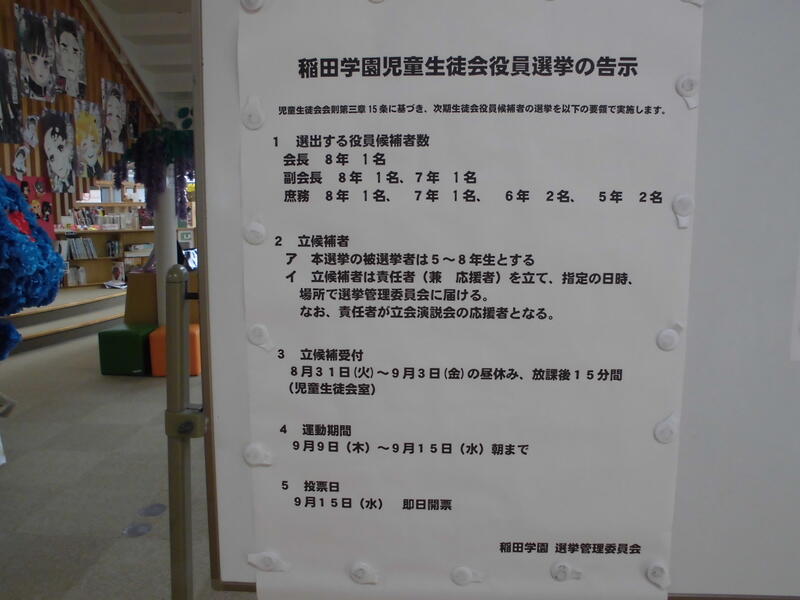 稲田学園児童生徒会役員選挙の告示
児童生徒会会則第三章15条に基づき、次期生徒会役員候補者の選挙を以下の要領で実施します。
1 選出する役員候補者数
会長 8年 1名
副会長 8年 1名、7年 1名
庶務 8年 1名、 7年 1名、 6年 2名、 5年 2名
2 立候補者
ア 本選挙の被選挙者は5~8年生とする
イ 立候補者は責任者（兼 応援者）を立て、指定の日時、
場所で選挙管理委員会に届ける。
なお、責任者が立会演説会の応援者となる。
3 立候補受付
8月31日(火)~9月3日(金)の昼休み、放課後15分間
（児童生徒会室）
4 運動期間
9月9日（木）~9月15日（水）朝まで
5 投票日
9月15日（水） 即日開票
稲田学園 選挙管理委員会